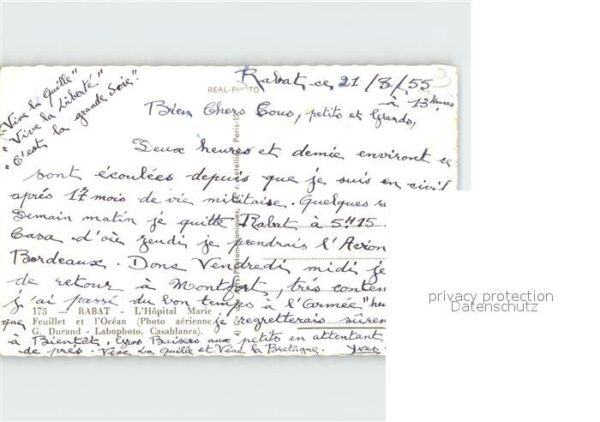 "Vive la Quille"
"Vive la Liberté"
"C'est la grande Joie!"
REAL-PHOTO
Rabat ce 21/8/55
à 13 heures
Bien Chers Tous, petits et Grands,
Deux heures et demie environt
sont écoulées depuis que je suis en civil
après 17 mois de vie militaire. Quelques
Demain matin je quitte Rabat à 5H15
Casa d'où jeudi je prendrais l'Avion
Bordeaux. Donc Vendredi midi je
de retour à Montfort, très conten
j'ai passé du bon temps à l'Armée"
175 — RABAT - L'Hôpital Marie
Feuillet et l'Océan (Photo aérienne.
que je regretterais sûrem
G. Durand - Labophoto. Casablanca).
à Bientôt, Gros Baisers aux petits en attentant
de près. Vive la Quille et Vive la Bretagne. Yves
privacy protection
Datenschutz